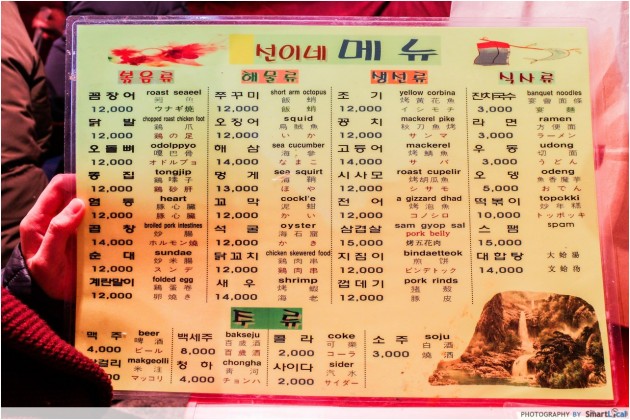 선이네 메뉴
볶음류 해물류 생선류 식사류
꼼장어 roast seaeel
12,000 ウナギ焼
닭발 chopped roast chicken foot
鶏爪
12,000 鶏の足
오돌뼈 odolppyo
12,000 オドルプョ
똥집 tongjip
12,000 鶏砂肝
염통 heart
豚心臓
12,000 豚心臓
곱창 broiled pork intestines
炒腸
14,000 ホルモン焼
순대 sundae
炒米腸
12,000 スンデ
계란말이 folded egg
鶏蛋卷
12,000 卵焼き
쭈꾸미 short arm octopus
飯蛸
12,000 飯蛸
오징어 squid
烏賊魚
12,000 いか
해삼 sea cucumber
海参
14,000 なまこ
멍게 sea squirt
海鞘
13,000 ほや
꼬막 cockl'e
泥蚶
12,000 かい
석굴 oyster
海石
12,000 かき
닭꼬치 chicken skewered food
鶏肉串
12,000 鶏肉串
새우 shrimp
烤蝦
14,000 海老
조기 yellow corbina
烤黃花魚
12,000 イシモチ
꽁치 mackerel pike
秋刀魚烤
12,000 サンマ
고등어 mackerel
烤鯖魚
12,000 サバ
시사모 roast cupelir
12,000 シサモ
전어 a gizzard dhad
12,000 コノシロ
삼겹살 sam gyop sal
pork belly
15,000 烤五花肉
지짐이 bindaetteok
煎餅
12,000 ピンデトック
껍데기 pork rinds
猪殻
12,000 豚皮
잔치국수 banquet noodles
宴會面條
3,000 宴麵
라면 ramen
方便面
3,000 ラーメン
우동 udong
切面
3,000 うどん
오뎅 odeng
5,000 おでん
떡볶이 topokki
10,000 トッポッキ
스팸 spam
15,000
대합탕 大蛤湯
14,000 文蛤汤
주류
맥주 beer
啤酒
4,000 ビール
막걸리 makgeolli
米注
4,000 マッコリ
백세주 bakseju
百歲酒
8,000 百歲酒
청하 chongha
青河
4,000 チョンハ
콜라 coke
可樂
2,000 コーラ
사이다 sider
汽水
2,000 サイダー
소주 soju
白酒
3,000 燒酒
PHOTOGRAPHY BY SmartLocal